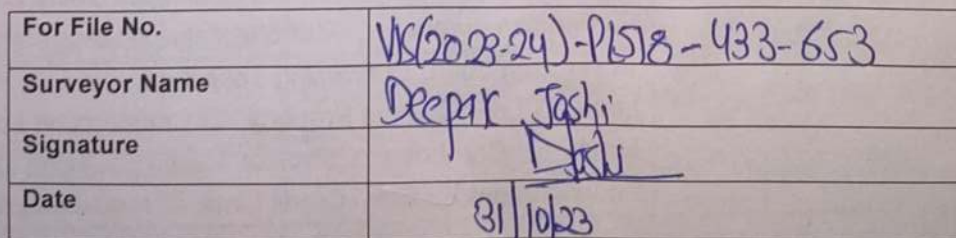 For File No. VIS(2023-24)-PL518-433-653
Surveyor Name Deepak Joshi
Signature Joshi
Date 31/10/23